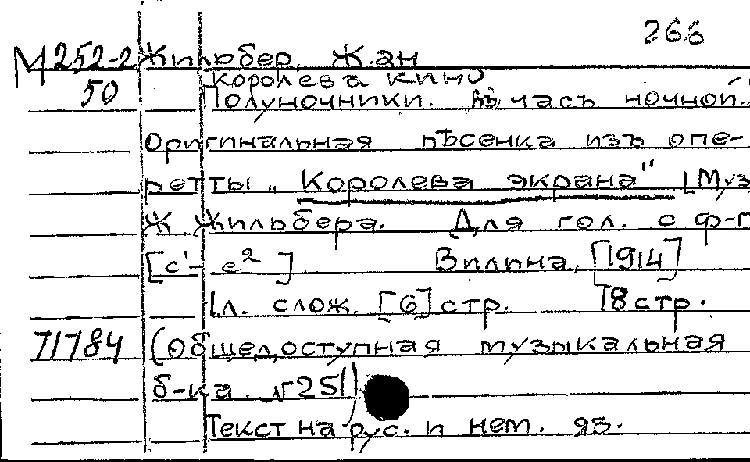 266
М252-2 Жильбер, Жан
50
Королева кино
Полуночники. Въ часъ ночной.
Оригинальная пѣсенка изъ опе-
ретты „Королева экрана" [Муз
Ж. Жильбера. Для гол. с ф-п
[c¹- e²] Вильна, [1914]
1л. слож. [6] стр. 18 стр.
71784 (Общедоступная музыкальная
б-ка. №251)
Текст на рус. и нем. яз.